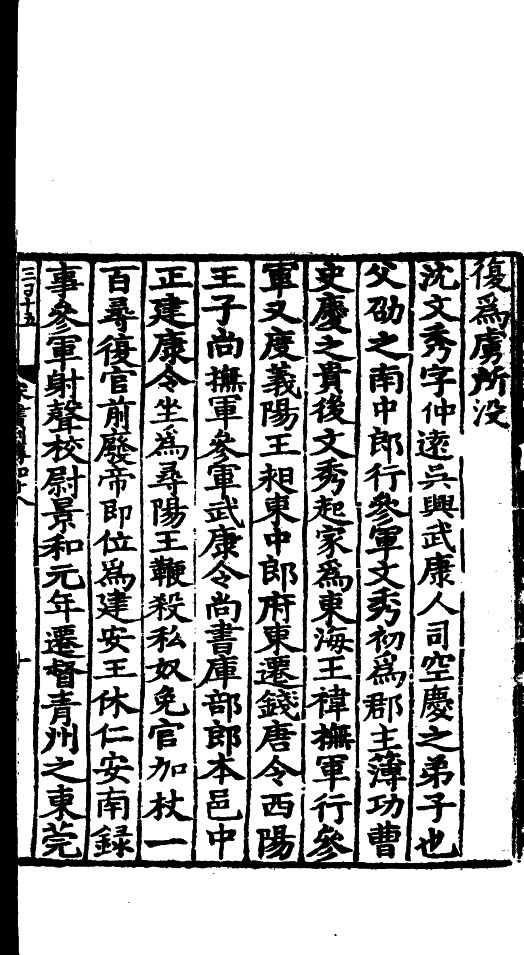 復爲虜所没
沈文秀字仲遠吳興武康人司空慶之弟子也
父劭之南中郎行參軍文秀初爲郡主簿功曹
史慶之貴後文秀起家爲東海王禕撫軍行參
軍又度義陽王昶東中郎府東遷錢唐令西陽
王子尚撫軍參軍武康令尚書庫部郎本邑中
正建康令坐爲尋陽王鞭殺私奴免官加杖一
百尋復官前廢帝即位爲建安王休仁安南録
事參軍射聲校尉景和元年遷督青州之東莞
三百十五
宋書列傳四十八
十